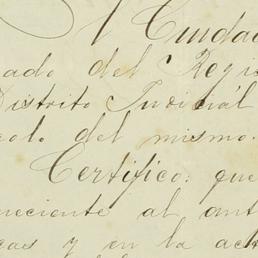 Ciudad
gado del Regis
Distrito Judicial
colo del mismo.
Certifico: que
neciente al ant
cas y en la act